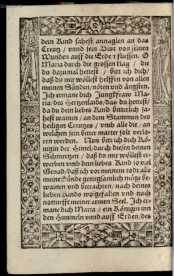 dein Kind sahest annaglen an das
Creutz / vnnd sein Blut von seinen
Wunden auff die Erde fliessen. O
Maria durch die grossen Klag / die
du dazumal hettest / bitt ich dich /
daß du mir wöllest helffen von allen
meinen Sünden, nöten und ängsten.
Ich ermane dich Jungkfraw Ma-
ria des Hertzenlaids, das du hettest
da du dein liebes Kind bitterlich sa-
hest wainen / an dem Stammen des
heiligen Creutzes / vnnd alle die / an
welchen sein bitter marter solt verlo-
ren werden. Nun bitt ich dich Kö-
nigin der Himel, durch diesen deinen
Schmertzen / daß du mir wöllest er-
werben vmb dein liebes Kind so vil
Genad / daß ich vor meinem tod alle
meine Sünde gentzigklichen müg be-
wainen vnd betrachten / nach deines
lieben Kinds wolgefallen vnd nach
notturfft meiner armen Seel. Ich er-
mane dich Maria / ein Königin von
den Himmeln vnnd auff Erden, des